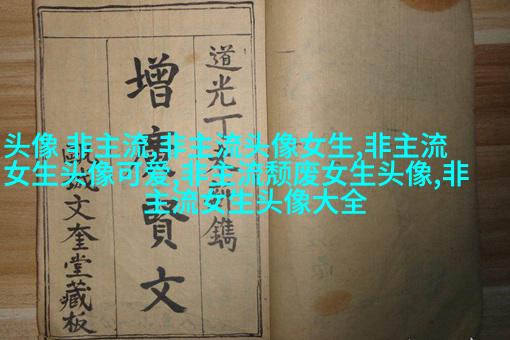 道光丁
鐫
增廣賢文
文奎堂藏板
头像,非主流,非主流头像女生,非主流
女生头像可爱,非主流颓废女生头像,非
主流女生头像大全